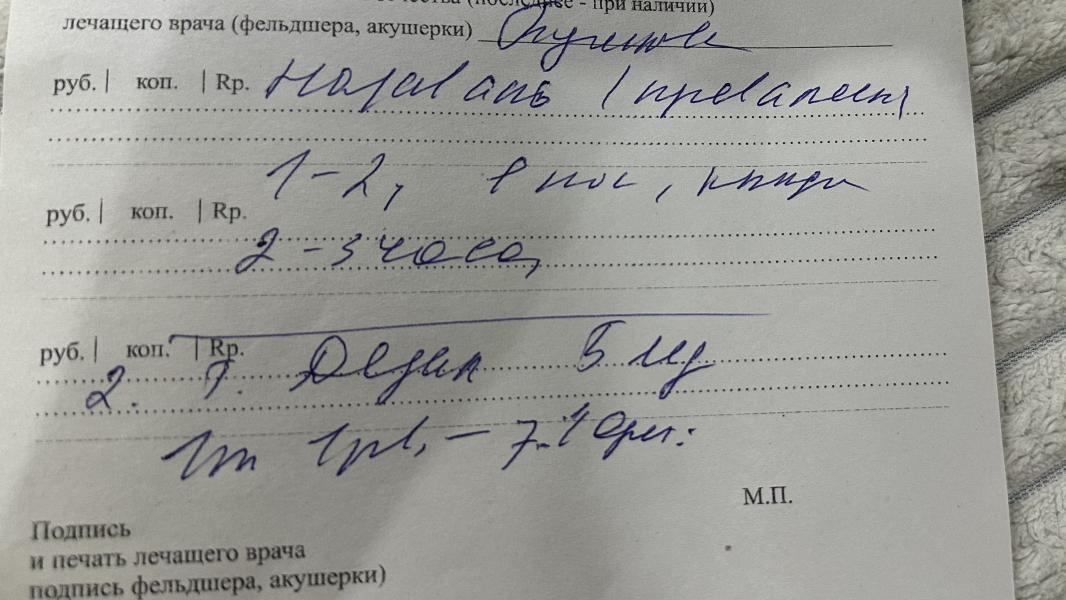 (последнее - при наличии)
лечащего врача (фельдшера, акушерки)
руб.| коп. |Rp. Назаваль (превалин)
1-2, в нос, кажд
руб.| коп. |Rp.
2-3 часа,
руб.| коп. |Rp.
2. Т. Дезал 5 мг
1т 1р/, - 7-10 дн.
М.П.
Подпись
и печать лечащего врача
подпись фельдшера, акушерки)